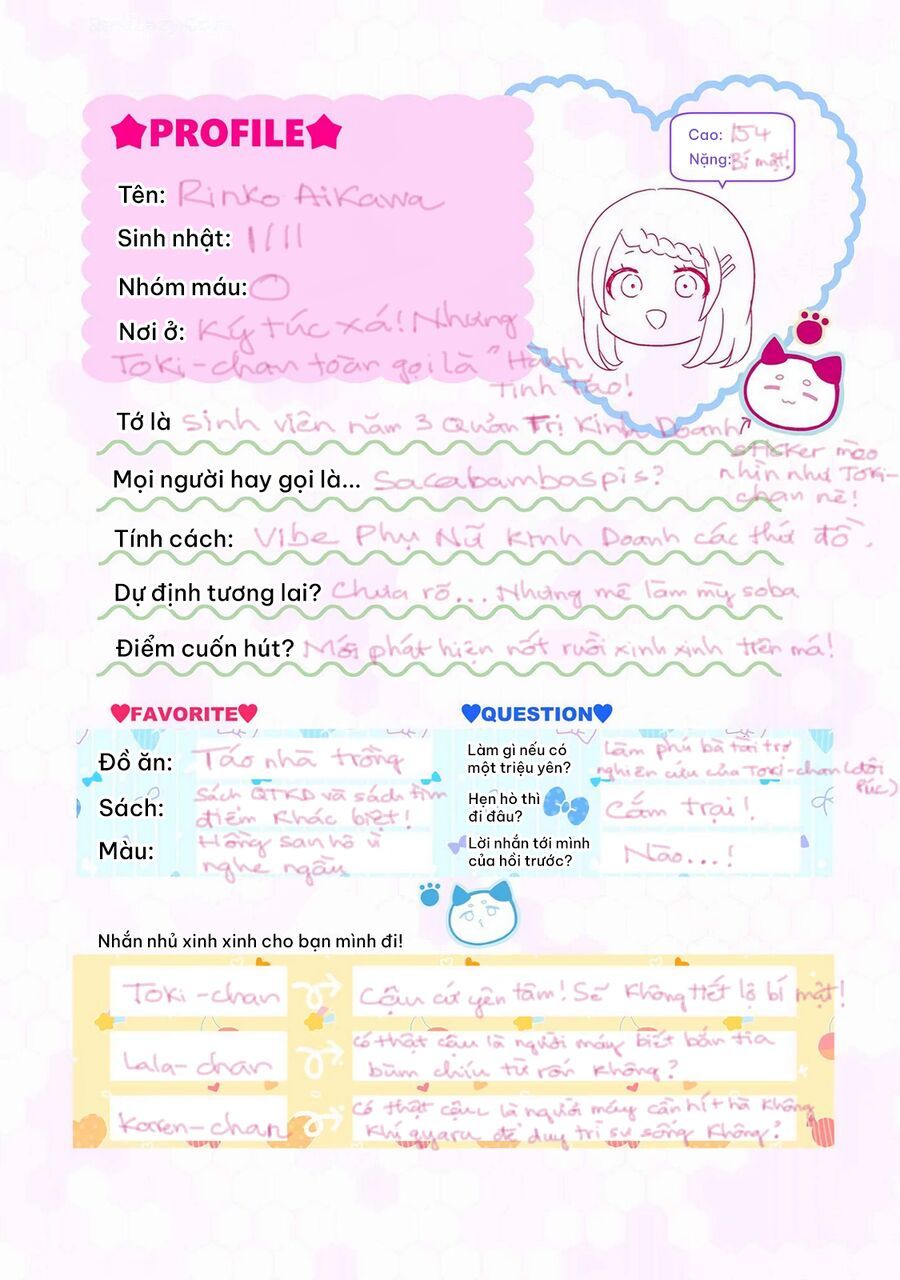 ★PROFILE★
Cao: 154
Nặng: Bí mật!
Tên: Rinko Aikawa
Sinh nhật: 1/11
Nhóm máu: O
Nơi ở: Ký túc xá! Nhưng
Toki-chan toàn gọi là "Hành
tinh Táo!
Tớ là Sinh viên năm 3 Quản Trị Kinh Doanh
sticker mèo
nhìn như Toki-
chan nè!
Mọi người hay gọi là... Sacabambaspis?
Tính cách: Vibe Phụ Nữ Kinh Doanh các thứ đồ.
Dự định tương lai? Chưa rõ... Nhưng mê làm mỳ soba
Điểm cuốn hút? Mới phát hiện nốt ruồi xinh xinh trên má!
♥FAVORITE♥
Đồ ăn: Táo nhà trồng
Sách: Sách QTKD và sách tìm
điểm khác biệt!
Màu: Hồng san hô vì
nghe ngầu
♥QUESTION♥
Làm gì nếu có
một triệu yên?
Làm phú bà tài trợ
nghiên cứu của Toki-chan (đôi
lúc)
Hẹn hò thì
đi đâu?
Cắm trại!
Lời nhắn tới mình
của hồi trước?
Nào...!
Nhắn nhủ xinh xinh cho bạn mình đi!
Toki-chan
Cậu cứ yên tâm! Sẽ không tiết lộ bí mật!
Lala-chan
Có thật cậu là người máy biết bắn tia
bùm chíu từ rốn không?
Karen-chan
Có thật cậu là người máy cần hít hà không
khí gyaru để duy trì sự sống không?